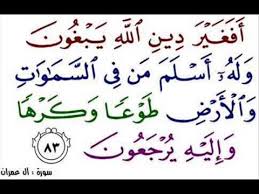 أَفَغَيْرَ دِينِ ٱللَّهِ يَبْغُونَ
وَلَهُۥٓ أَسْلَمَ مَن فِى ٱلسَّمَٰوَٰتِ
وَٱلْأَرْضِ طَوْعًا وَكَرْهًا
وَإِلَيْهِ يُرْجَعُونَ ٨٣
سورة : آل عمران